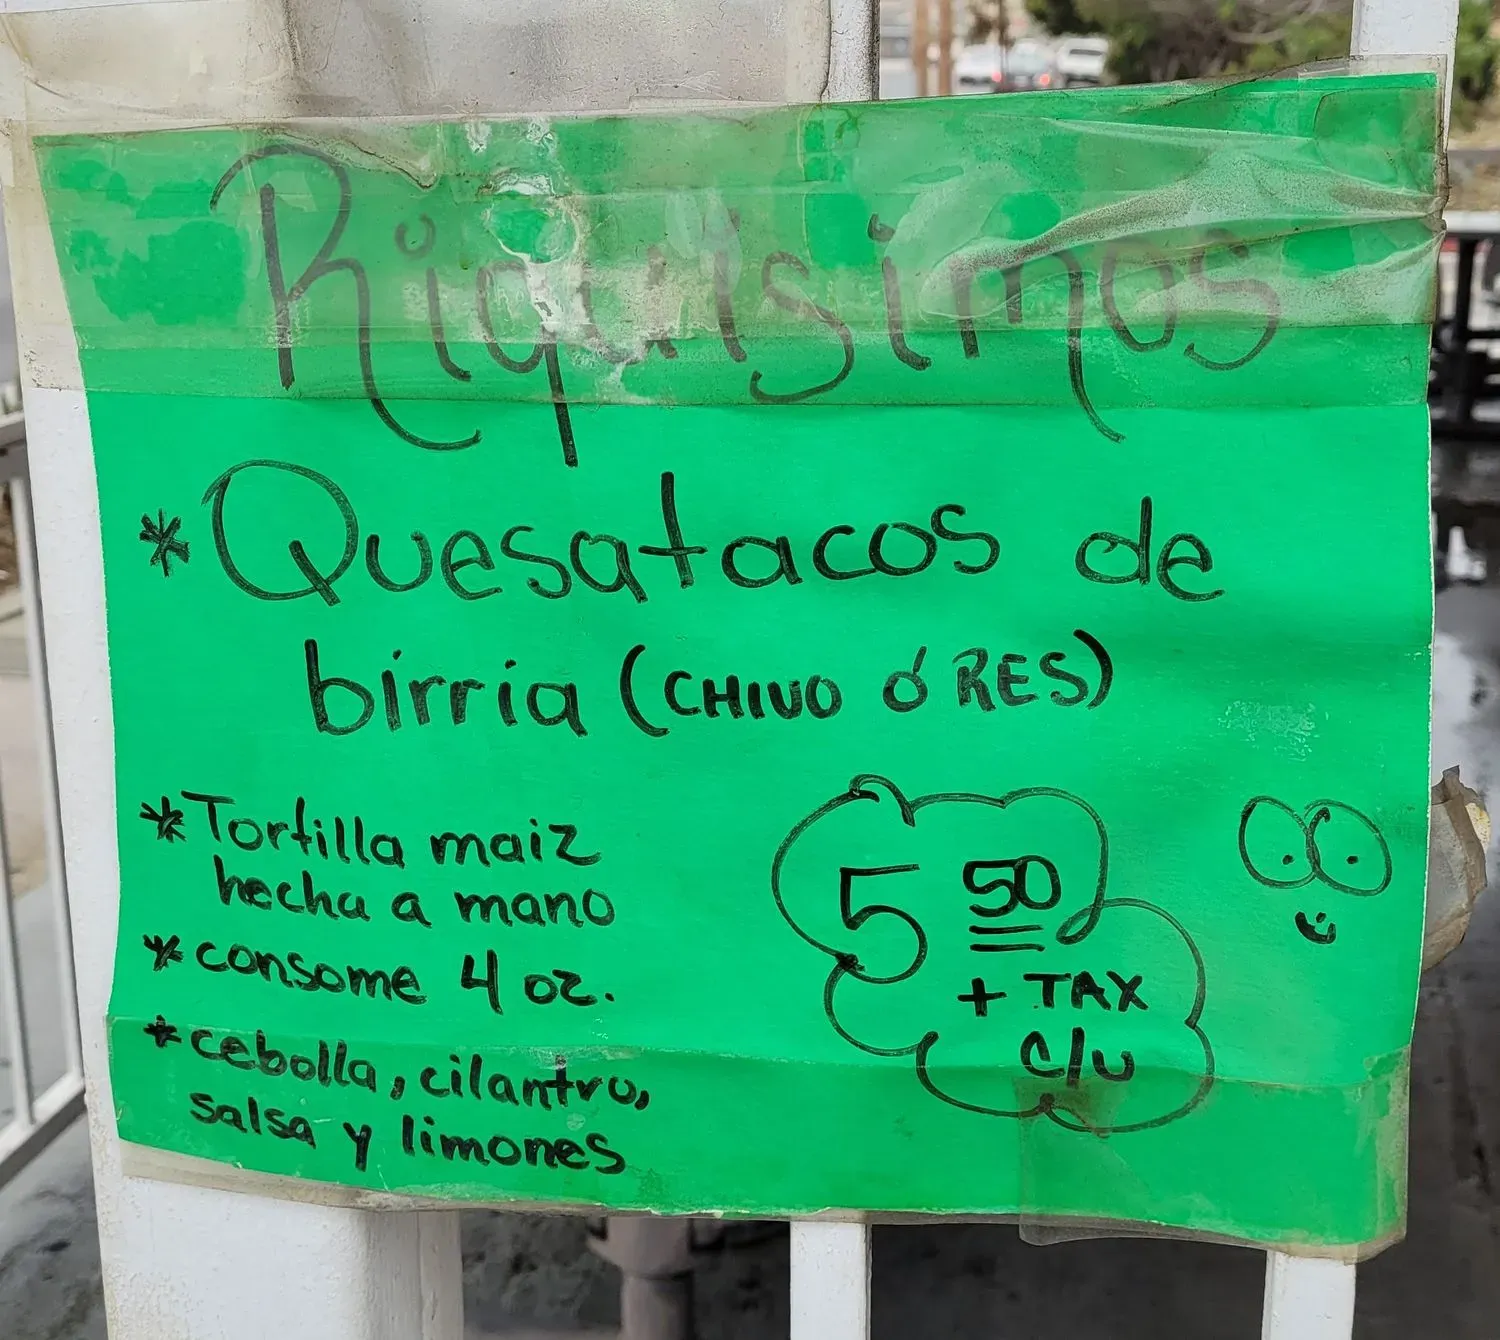 Riquisimos
* Quesatacos de
birria (CHIVO Ó RES)
* Tortilla maiz
hecha a mano
* consome 4 oz.
* cebolla, cilantro,
salsa y limones
5 50
+ TAX
c/u